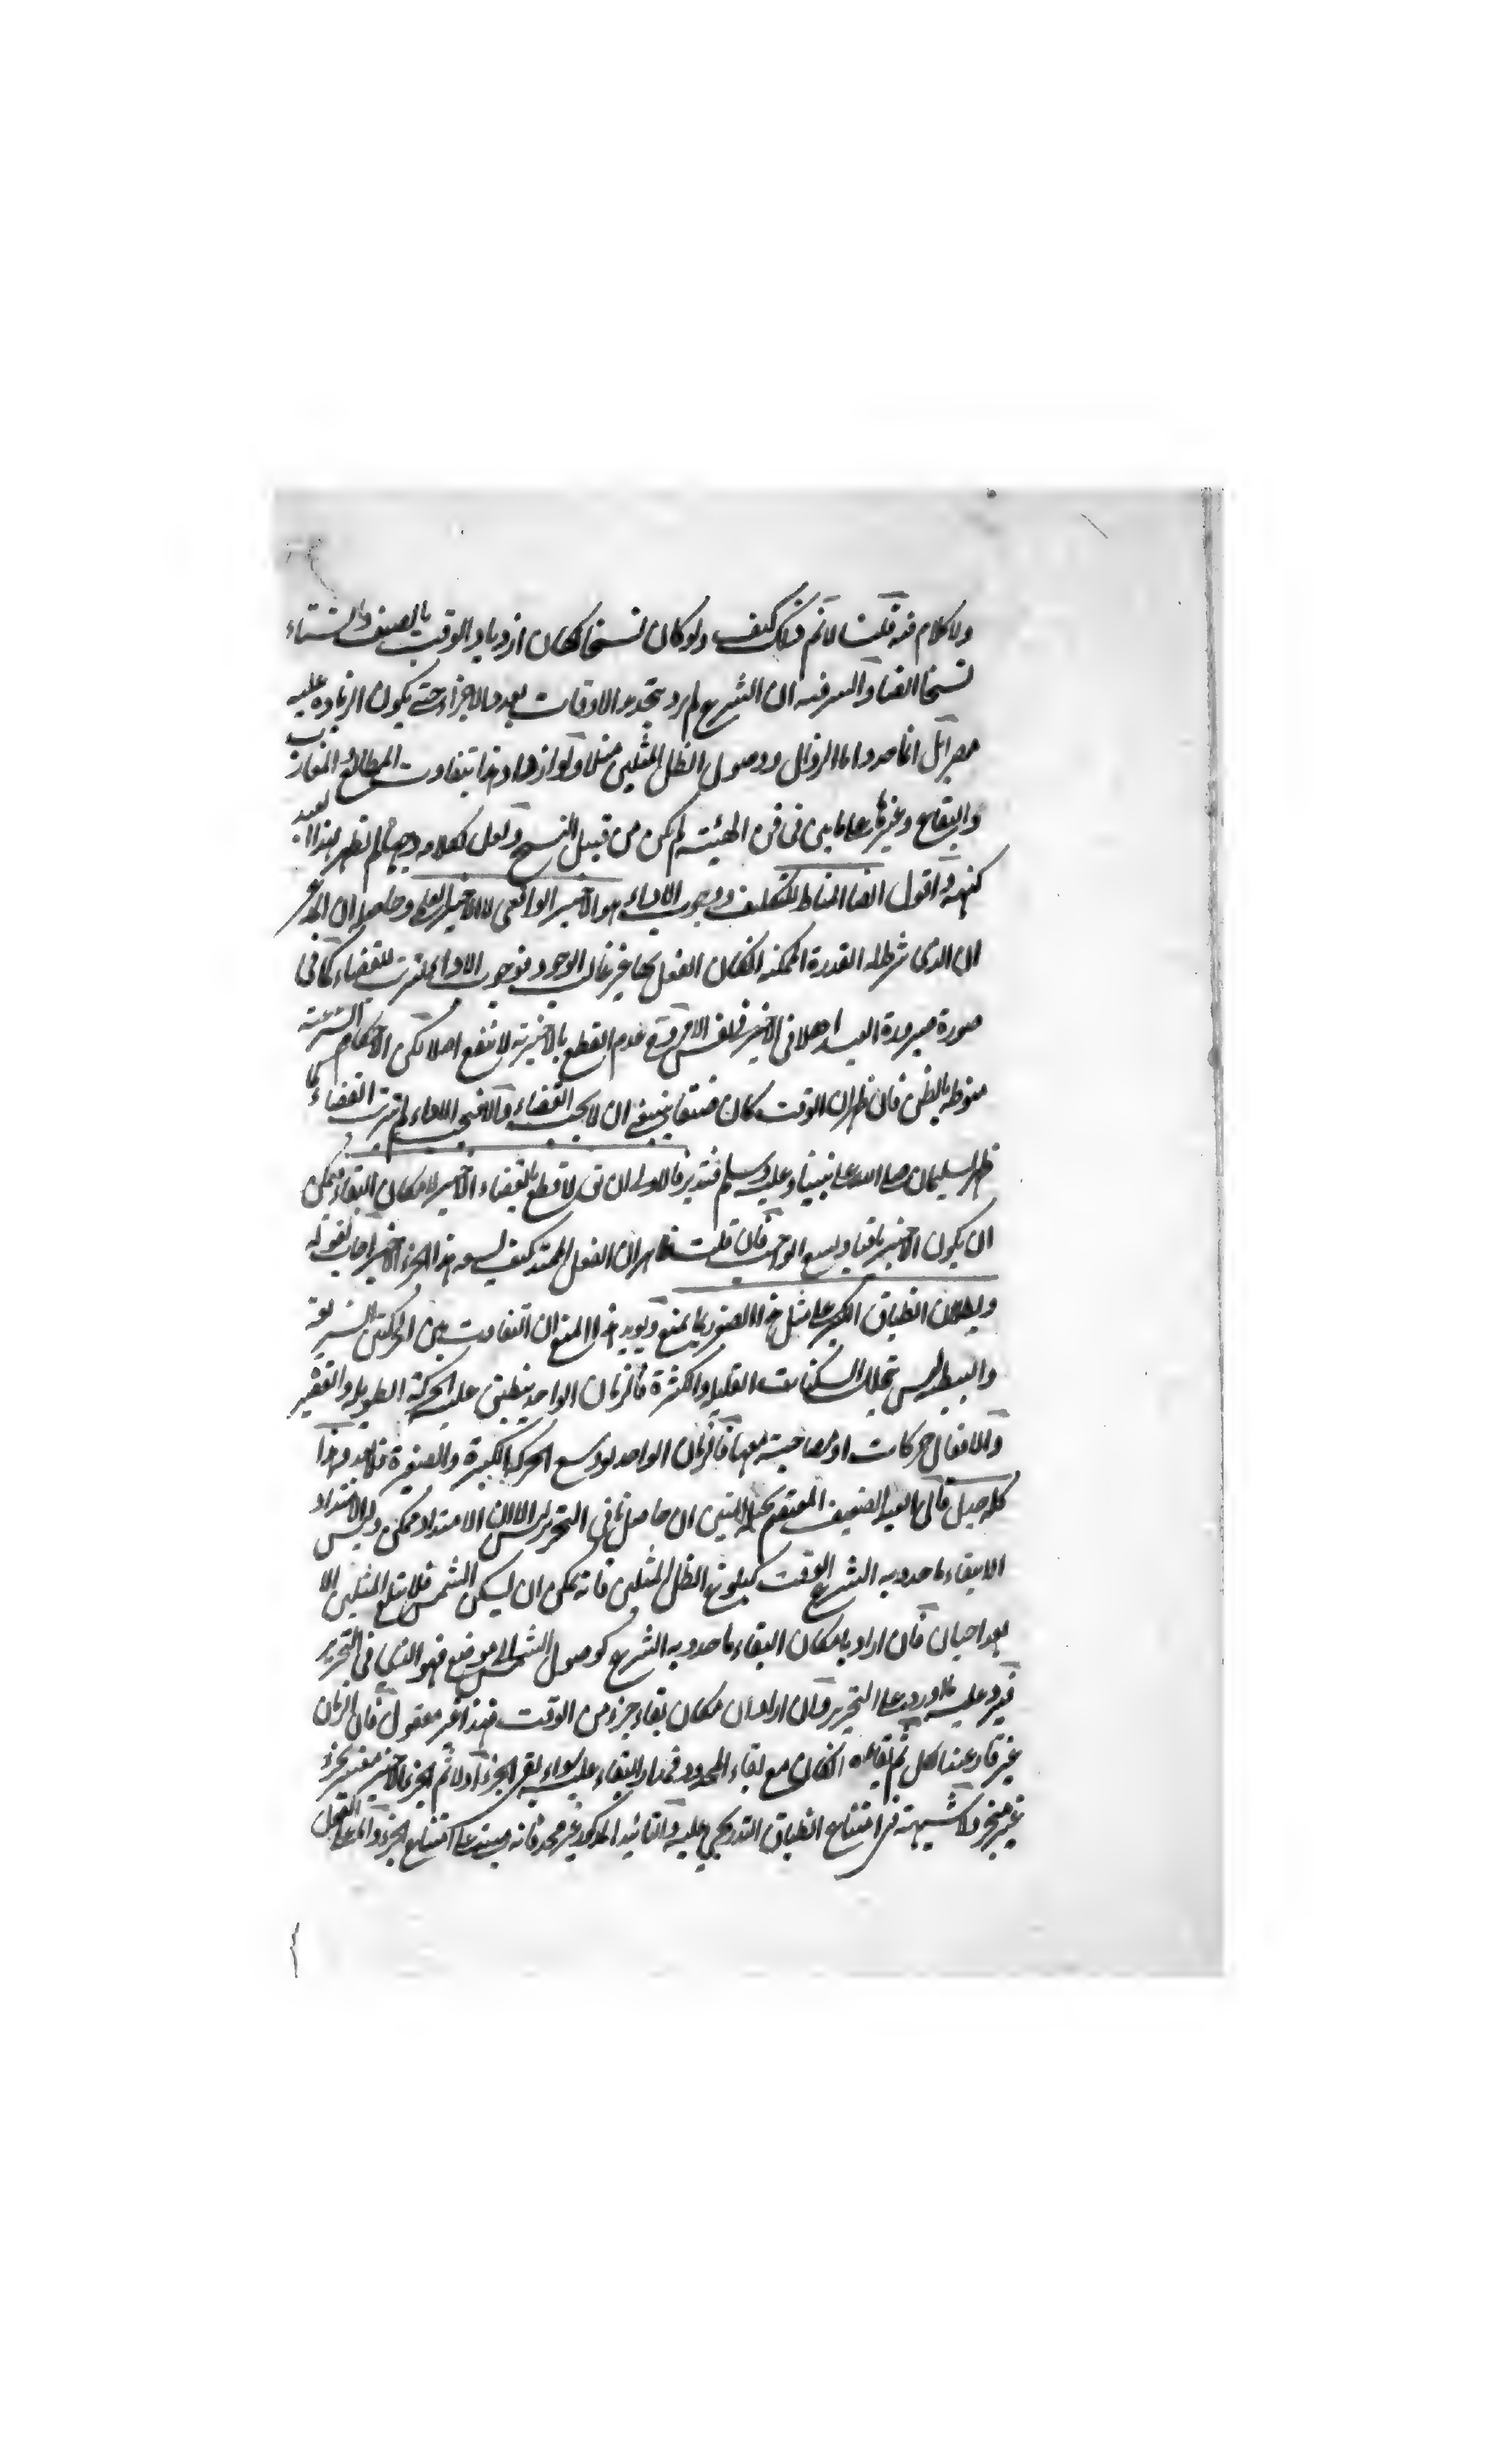 ولا كلام فيه قلت لا نم ذلك كيف ولو كان نسخا لكان ازدياد الوقت بالصيف والشتاء
نسخا ايضا والسر فيه ان الشرع لم يرد بتحديد الاوقات بعدد الاجزاء حتى يكون الزيادة عليه
انما حددوا بالزوال ووصول الظل المثلين مثلا ولوازمها وهذا يتفاوت المطالع والمغارب
والبقاع وغيرها على ما بين في فن الهيئة لم يكن من قبيل النسخ ولعل لكلامه وجها لم نظهر بهذا العبد
كنهه واقول ايضا المناط للتكليف ووجوب الاداء هو الاخير الواقعي لا الاخير العلمي وحاصله ان
ان الذي شرط له القدرة الممكنة ان كان الفعل بها غير غالب الوجود فوجوب الاداء ليترتب القضاء كما في
صورة صيرورة العبد اهلا في الاخير في نفس الامر وح عدم القطع بالاخيرية لا ينفع اصلا لكن الاحكام الشرعية
منوطة بالظن فان ظهر ان الوقت كان ضيقا ينبغي ان لا يجب القضاء والا فيجب الاداء لم يترتب القضاء كما
ظهر لسليمان صلى الله على نبينا وعليه وسلم فتدبر فالاولى ان يق لا قطع بالقضاء الاخير لامكان البقاء فيمكن
ان يكون الاخير باقيا ويسع الواجب فان قلت ان الفعل الممتد كيف يسعه هذا الجزء الاخير اجاب بقوله
وبطلان انطباق الكبير على مثل هذا الصغير مما يمنع ويؤيد هذا المنع ان التفاوت بين الحركتين السريعة
والبطيئة ليس بتخلل السكنات القليلة والكثيرة فالزمان الواحد ينطبق عليه الحركة الطويلة والقصيرة
والافعال حركات او مصاحبة معها فالزمان الواحد لو وسع الحركة الكبيرة والصغيرة فلا بعد وهذا
كله جيل قال العبد الضعيف المعتصم بحبله المتين ان حاصل ما في التحرير ليس الا ان الامتداد ممكن وليس الامتداد
الا بقاء ما حدد به الشرع الوقت كبلوغ الظل المثلين فانه يمكن ان يسكن الشمس فلا يبلغ المثلين الا
بعد احيان فان اراد بامكان البقاء ما حدد به الشرع كوصول الشمس الى موضع فهو الذي في التحرير
فيرد عليه ما اورد على التحرير وان اراد ان مكان بقاء جزء من الوقت فهذا غير معقول فان الزمان
غير قار عند الكل ثم بقاءه ان كان مع بقاء المحدود فمدار البقاء عليه سواء بقي الجزء او لا ثم الجزء الاخير معتبر بجزء
غير متجز ولا شبهة في امتناع انطباق التدريجي عليه والتائيد المذكور غير مجد فانه مبني على امتناع الجزء واما على القول